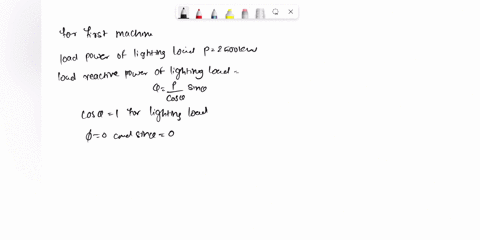 for first machine
load power of lighting load P=2500kw
load reactive power of lighting load =
Q = P/cosφ sinφ
cosφ = 1 for lighting load
φ=0 and sinφ=0